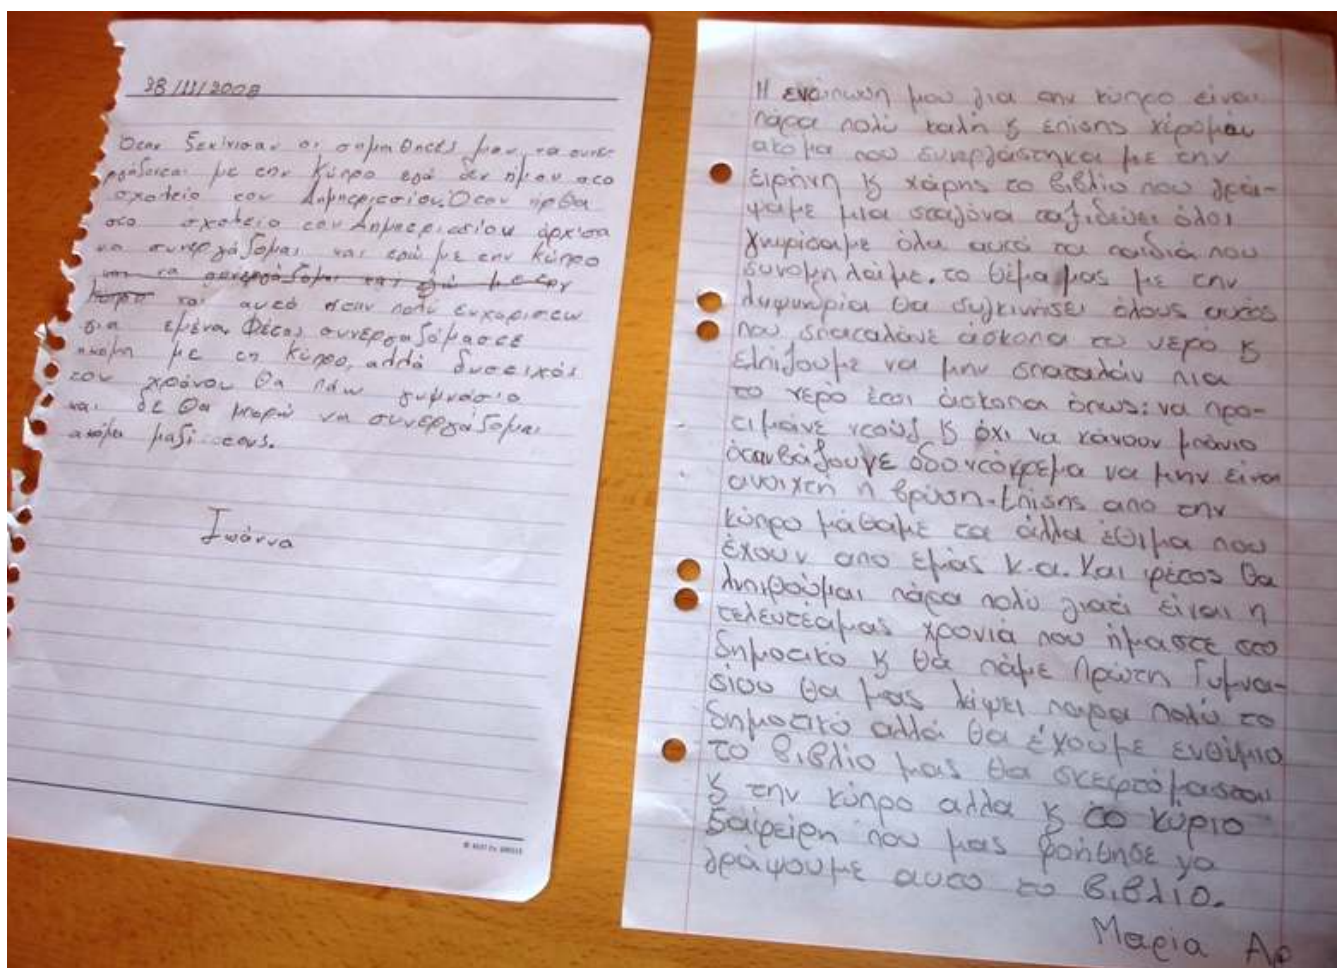 28/11/2008
Όταν ξεκίνισαν οι συμαθητές μου να συνερ-
γάζονται με την Κύπρο εγώ δεν ήμουν στο
σχολείο του Δημητρίου. Όταν ήρθα
στο σχολείο του άρχισα
να συνεργάζομαι και εγώ με την Κύπρο
και να συνεργάζομαι και εγώ με την
Κύπρο και αυτό ήταν πολύ
για εμένα. Φέτος συνεργαζόμαστε
ακόμη με τη Κύπρο, αλλά δυστιχός
του χρόνου θα πάω γυμνάσιο
και δε θα μπορώ να συνεργάζομαι
ακόμα μαζί τους.
Ιωάννα
Η εντύπωση μου για την κύπρο είναι
πάρα πολύ καλή ϗ επίσης χέρομαι
ακομα που συνεργάστηκα με την
ειρήνη ϗ χάρης το βιβλίο που γρά-
ψαμε μια σταγόνα ταξιδεύει όλοι
γνωρίσαμε όλα αυτά τα παιδιά που
συνομηλούμε. το θέμα μας με την
λυψυνδρία θα συγκινήσει όλους αυτός
που σπαταλάνε άσκοπα το νερό ϗ
ελπίζουμε να μην σπαταλάν πια
το νερό έτσι άσκοπα όπως: να προ-
τιμάνε ντούς ϗ όχι να κάνουν μπάνιο
όταν βάζουνε οδοντόκρεμα να μην είναι
ανοιχτή η βρύση. Επίσης απο την
κύπρο μάθαμε τα άλλα έθιμα που
έχουν απο εμάς κ.α. Και φέτος θα
λυπιθούμαι πάρα πολύ γιατί είναι η
τελευτέα μας χρονιά που ήμαστε στο
δημοτικό ϗ θα πάμε Πρώτη Γυμνα-
σίου θα μας λίψει παρα πολύ το
δημοτικό αλλά θα έχουμε ενθύμιο
το βιβλίο μας θα σκεφτόμαστε
ϗ την κύπρο αλλα ϗ το κύριο
που μας βοήθησε να
γράψουμε αυτο το βιβλίο.
Μαρία Αρ